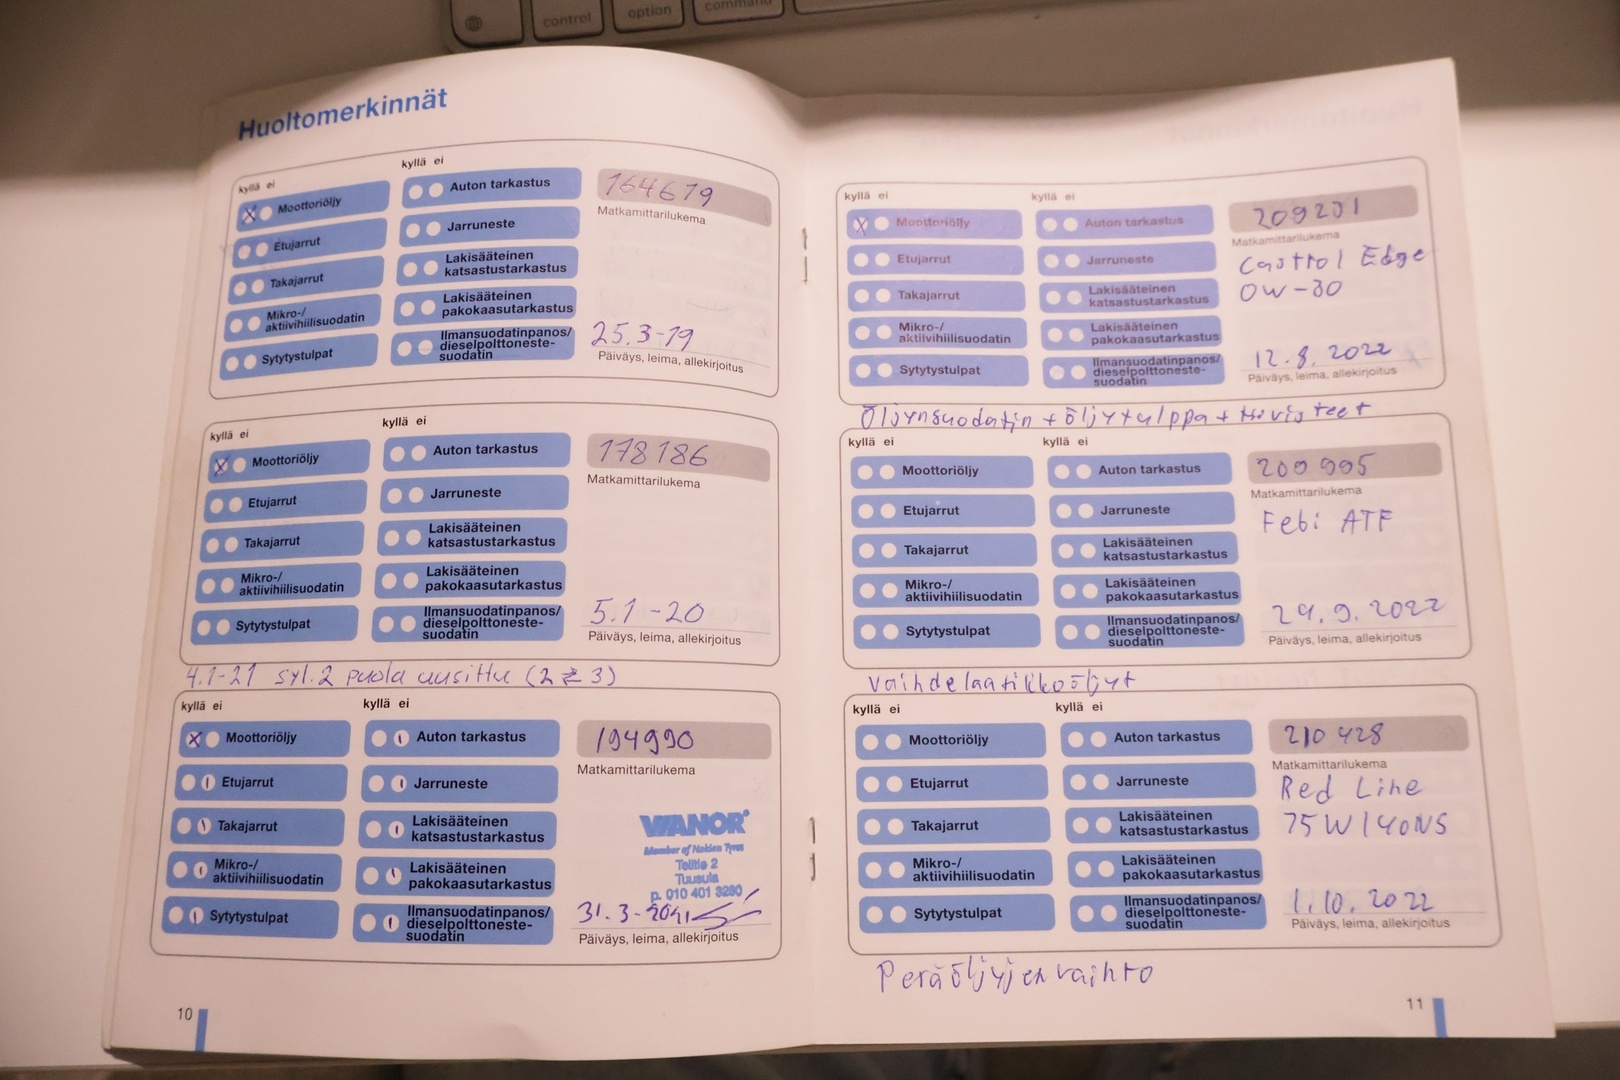 control
option
command
Huoltomerkinnät
kyllä ei
kyllä ei
Moottoriöljy
Etujarrut
Takajarrut
Mikro-/
aktiivihiilisuodatin
Sytytystulpat
Auton tarkastus
Jarruneste
Lakisääteinen
katsastustarkastus
Lakisääteinen
pakokaasutarkastus
Ilmansuodatinpanos/
dieselpolttoneste-
suodatin
164619
Matkamittarilukema
25.3-19
Päiväys, leima, allekirjoitus
kyllä ei
kyllä ei
Moottoriöljy
Etujarrut
Takajarrut
Mikro-/
aktiivihiilisuodatin
Sytytystulpat
Auton tarkastus
Jarruneste
Lakisääteinen
katsastustarkastus
Lakisääteinen
pakokaasutarkastus
Ilmansuodatinpanos/
dieselpolttoneste-
suodatin
178186
Matkamittarilukema
5.1-20
Päiväys, leima, allekirjoitus
4.1-21 syl.2 puola uusittu (2 ⇄ 3)
kyllä ei
kyllä ei
Moottoriöljy
Etujarrut
Takajarrut
Mikro-/
aktiivihiilisuodatin
Sytytystulpat
Auton tarkastus
Jarruneste
Lakisääteinen
katsastustarkastus
Lakisääteinen
pakokaasutarkastus
Ilmansuodatinpanos/
dieselpolttoneste-
suodatin
194990
Matkamittarilukema
VIANOR
Member of Nokian Tyres
Telitie 2
Tuusula
p. 010 401 3280
31.3-2021
Päiväys, leima, allekirjoitus
10
kyllä ei
kyllä ei
Moottoriöljy
Etujarrut
Takajarrut
Mikro-/
aktiivihiilisuodatin
Sytytystulpat
Auton tarkastus
Jarruneste
Lakisääteinen
katsastustarkastus
Lakisääteinen
pakokaasutarkastus
Ilmansuodatinpanos/
dieselpolttoneste-
suodatin
209201
Matkamittarilukema
Castrol Edge
0W-30
12.8.2022
Päiväys, leima, allekirjoitus
Öljynsuodatin + öljytulppa + tiivisteet
kyllä ei
kyllä ei
Moottoriöljy
Etujarrut
Takajarrut
Mikro-/
aktiivihiilisuodatin
Sytytystulpat
Auton tarkastus
Jarruneste
Lakisääteinen
katsastustarkastus
Lakisääteinen
pakokaasutarkastus
Ilmansuodatinpanos/
dieselpolttoneste-
suodatin
209995
Matkamittarilukema
Febi ATF
24.9.2022
Päiväys, leima, allekirjoitus
Vaihdelaatikkoöljyt
kyllä ei
kyllä ei
Moottoriöljy
Etujarrut
Takajarrut
Mikro-/
aktiivihiilisuodatin
Sytytystulpat
Auton tarkastus
Jarruneste
Lakisääteinen
katsastustarkastus
Lakisääteinen
pakokaasutarkastus
Ilmansuodatinpanos/
dieselpolttoneste-
suodatin
210428
Matkamittarilukema
Red Line
75W140NS
1.10.2022
Päiväys, leima, allekirjoitus
Peräöljyjen vaihto
11